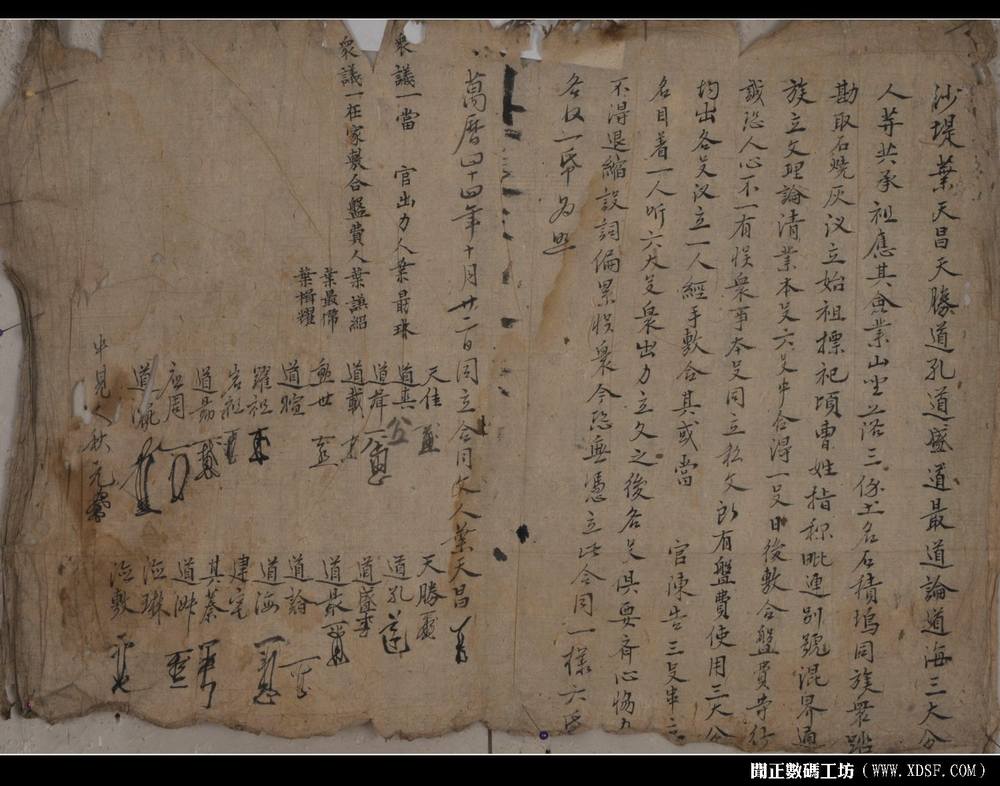 沙堤葉天昌天勝道孔道盛道最道論道海三大分
人等共承祖應其僉業山坐落三保土名石積塢同族眾踏
勘取石燒灰議立始祖摽祀頃曹姓指称毗連別號混界通
族立文理論清業本爻六爻中合得一爻日後敷合盤費等行
誠恐人心不一有悮衆事本爻同立私文所有盤費使用三大分
均出各爻议立一人經手敷合其或當官陳告三爻串立
名目着一人听六大爻衆出力立文之後各爻俱要齊心協力
不得退縮設詞偏累悮衆今恐無憑立此合同一樣六帋
各收一帋為照
萬曆四十四年十月廿二日同立合同文人葉天昌
天勝
道孔
道盛
道最
道論
道海
建宅
其蓁
天佳
道典
道諱
道載
道暄
羅祖
岩祖
道易
應周
中見人秋元
衆議一當 官出力人葉最琳
衆議一在家裝合盤費人葉謨紹
葉最佛
葉楫耀
聞正數碼工坊（WWW.XDSF.COM）